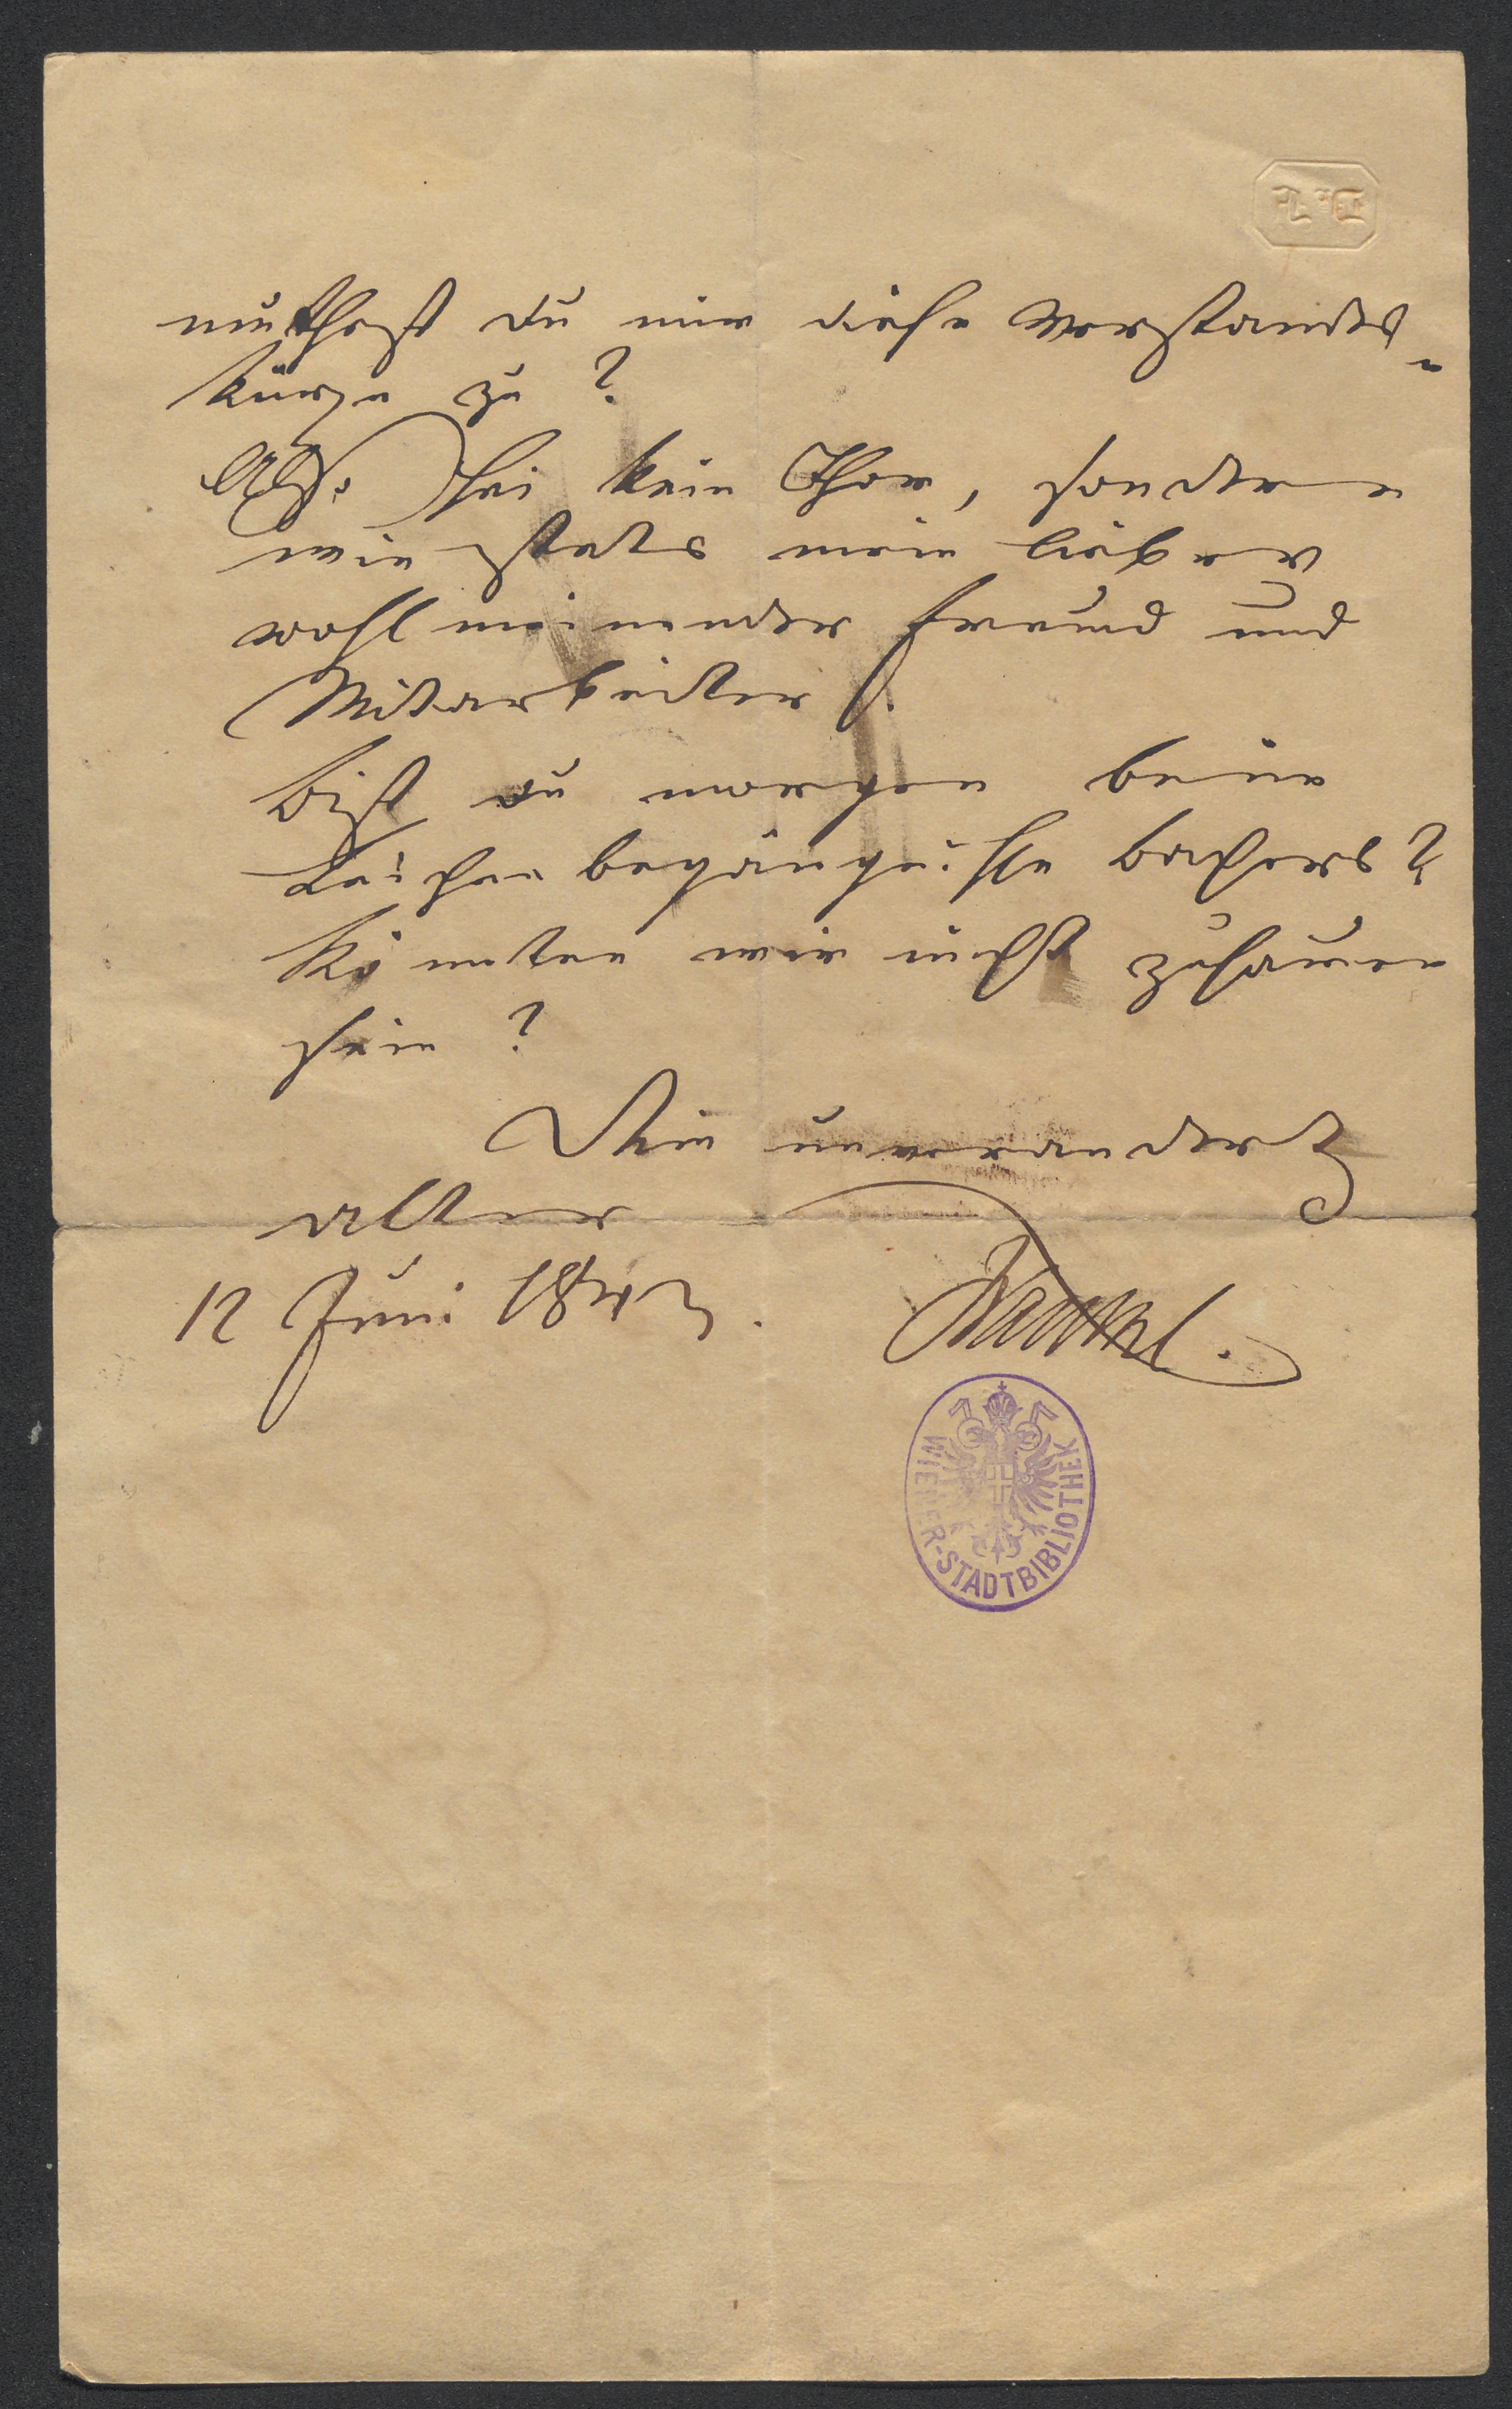 muthest du mir diese Verstandes-
kürze zu?
Also sei kein Thor, sondern
wie stets mein lieber
wohlmeinender Freund und
Mitarbeiter!
Bist du morgen beim
Leichenbegängnisse Bachers?
Könnten wir nicht zusamen
sein?
Dein unverändert
alter
12 Juni 1847.
WIENER-STADTBIBLIOTHEK